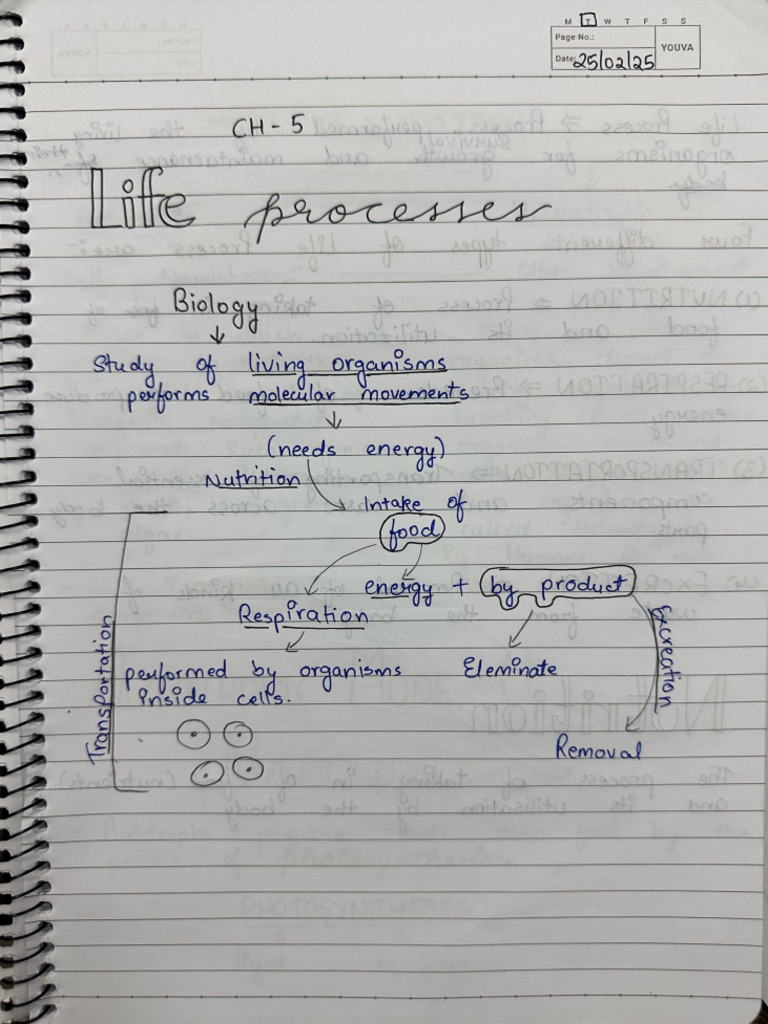 M T W T F S S
Page No.:
YOUVA
Date: 25/02/25
CH - 5
Life processes
Biology
Study of living organisms
performs molecular movements
(needs energy)
Nutrition
Intake of
food
energy + by product
Respiration
Excreation
Transportation
performed by organisms
inside cells.
Eleminate
Removal